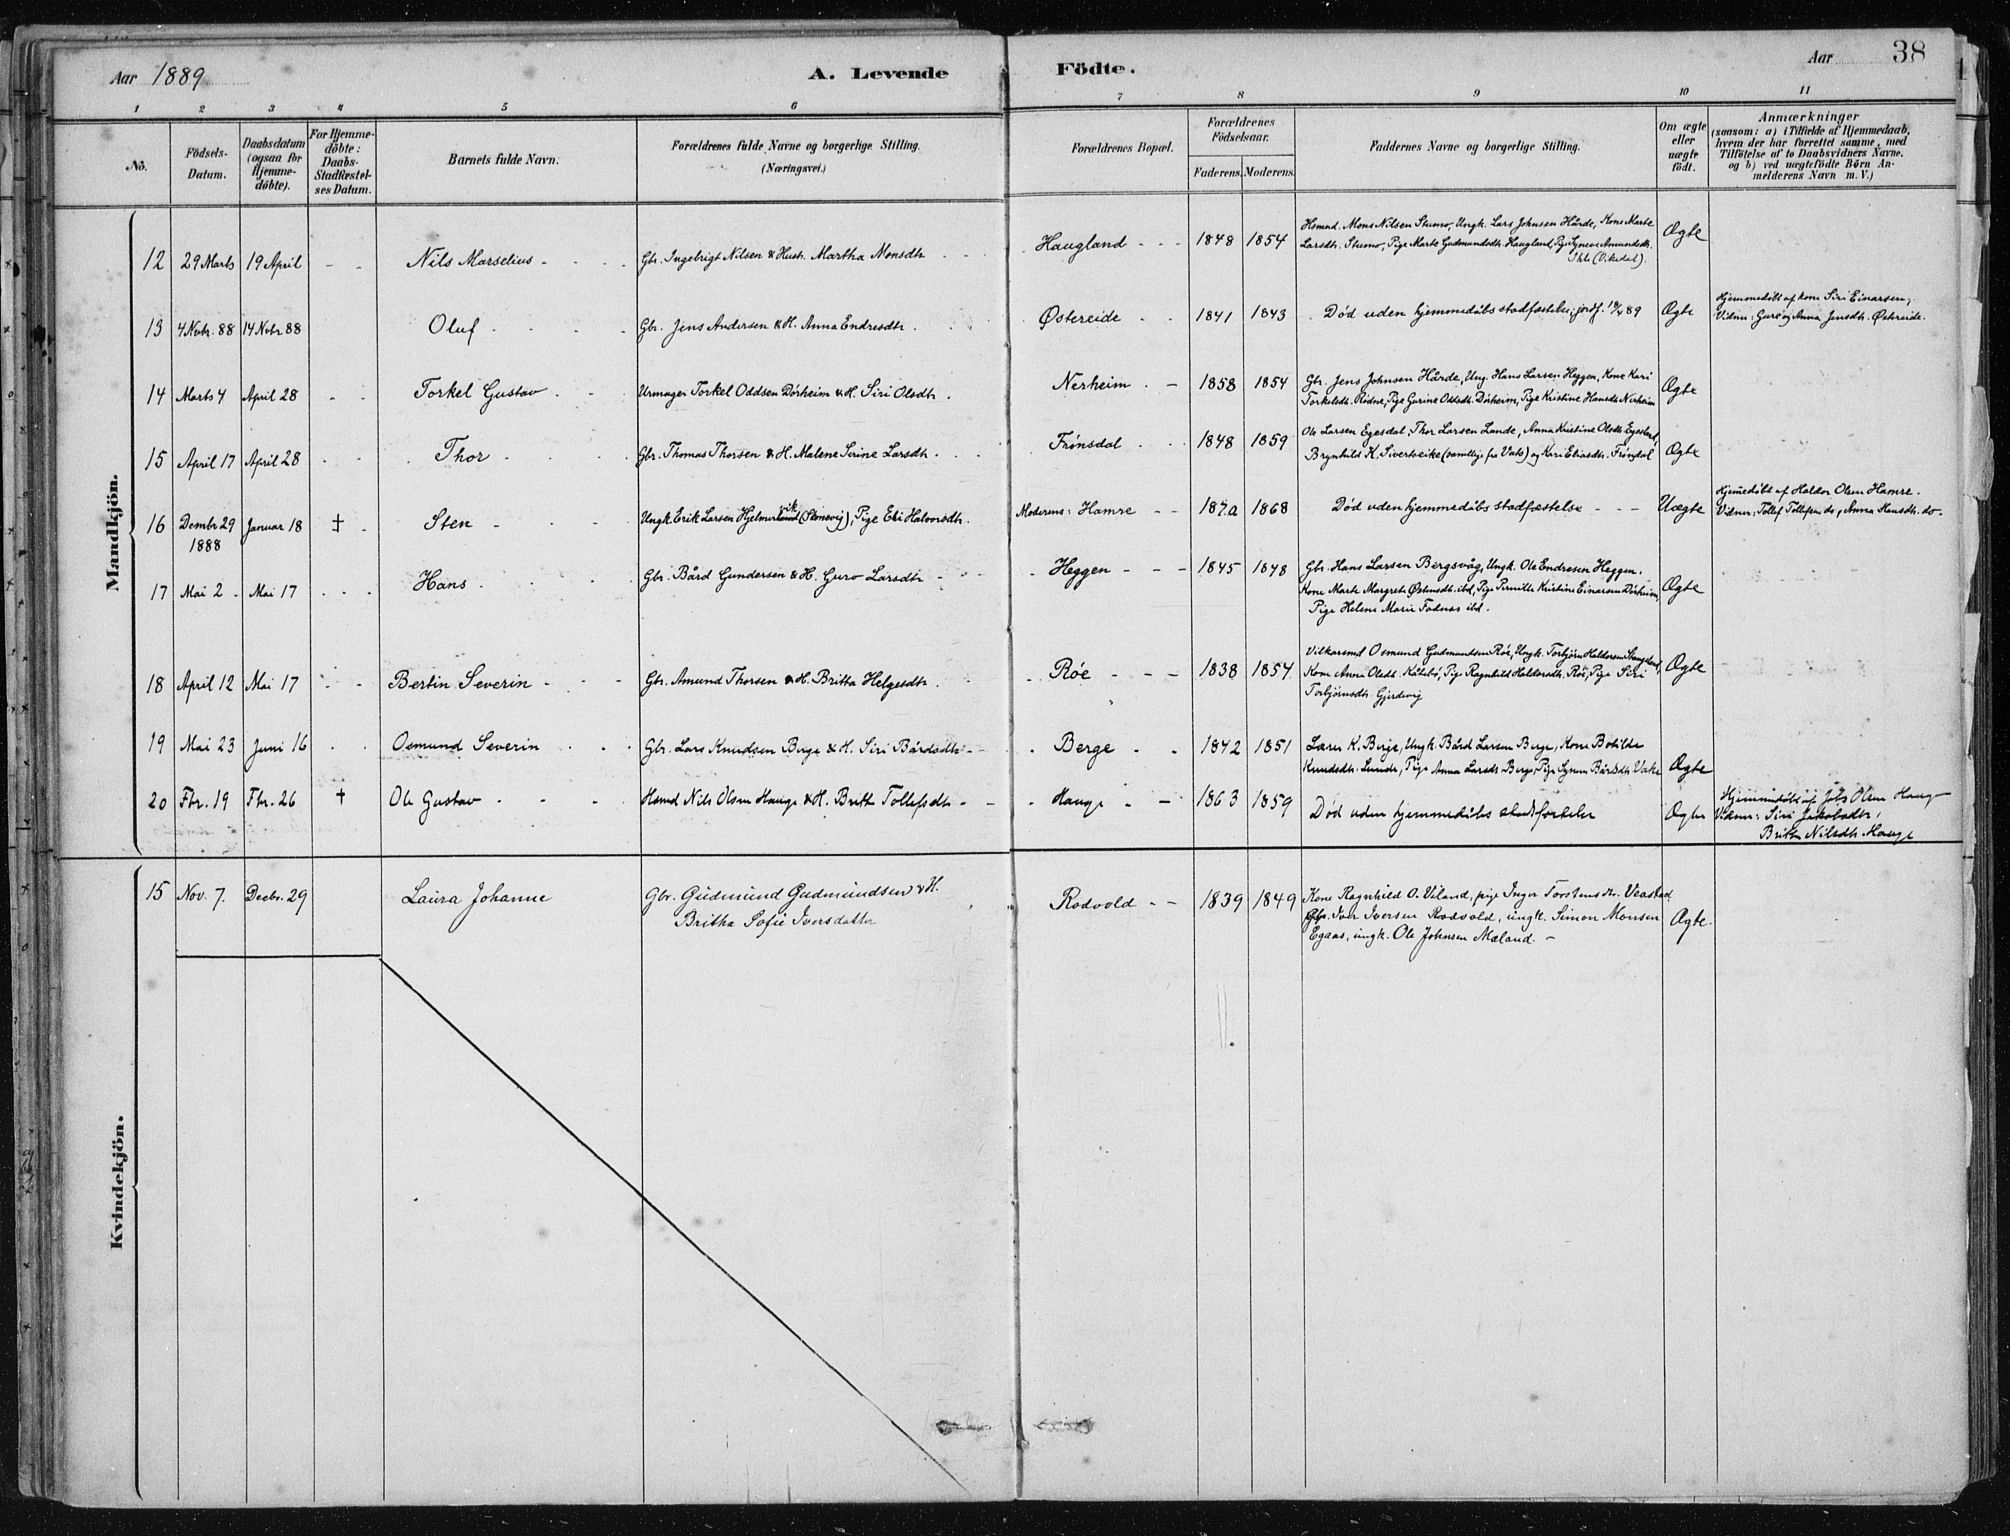 Aar 1889 A. Levende Födte. Aar 38
1 2 3 4 5 6 7 8 9 10 11
No.
Födsels-
Datum.
Daabsdatum
(ogsaa for
Hjemme-
döbte).
For Hjemme-
döbte:
Daabs-
Stadfæstel-
ses Datum.
Barnets fulde Navn.
Forældrenes fulde Navne og borgerlige Stilling.
(Næringsvei.)
Forældrenes Bopæl.
Forældrenes
Födselsaar.
Faderens. Moderens.
Faddernes Navne og borgerlige Stilling.
Om ægte
eller
uægte
födt.
Anmærkninger
(saasom: a) i Tilfælde af Hjemmedaab,
hvem der har forrettet samme, med
Tilföielse af to Daabsvidners Navne,
og b) ved uægtefödte Börn An-
melderens Navn m. V.)
Mandkjön.
12 29 Marts 19 April - - Nils Marselius Gbr. Ingebrigt Nilsen & Hustr. Martha Monsdtr Haugland 1848 1854 Husmd. Mons Nilsen Stumo, Ungk. Lars Johnsen Hårde, Kone Marte
Larsdtr. Stumo, Pige Marte Gudmundsdtr. Haugland, Pige Syneve Amundsdtr.
(Vikedal). Ægte
13 4 Novbr. 88 14 Novbr 88 Oluf Gbr. Jens Andersen & H. Anna Endresdtr. Østereide 1841 1843 Død uden hjemmedåbs stadfæstelse; jordf. 89 Ægte Hjemmedöbt af kone Siri Einarsen,
Vidner: Guro og Anna Jensdtr. Østereide.
14 Marts 4 April 28 Torkel Gustav Urmager Torkel Oddsen Dörheim & H. Siri Olsdtr. Nerheim 1858 1854 Gbr. Jens Johnsen Hårde, Ung. Hans Larsen Heggen, Kone Kari
Torkelsdtr. Rödne, Pige Gurine Oddsdtr. Dörheim, Pige Kristine Hansdtr Nerheim Ægte
15 April 17 April 28 Thor Gbr. Thomas Thorsen & H. Malene Serine Larsdtr. Frönsdal 1848 1859 Ole Larsen Egesdal, Thor Larsen Lande, Anna Kristine Olsdtr.
Brynhild K. Sivertseike (samtlige fra Vats) og Kari Eliasdtr. Frönsdal Ægte
16 Decmbr 29
1888 Januar 18 † Sten Ungk. Erik Larsen (Stensvig), Pige Eli Halvorsdtr. Moderens: Hamre 1868 Död uden hjemmedåbs stadfæstelse Uægte Hjemmedöbt af Haldor Olsen Hamre.
Vidner: Tollef Tollefsen do, Anna Hansdtr. do.
17 Mai 2 Mai 17 Hans Gbr. Bård Gundersen & H. Guro Larsdtr Heggen 1845 1848 Gbr. Hans Larsen Bergsvåg, Ungk. Ole Endresen Heggen.
Kone Marte Margrete Østensdtr. ibd, Pige Pernille Kristine Einarsen Dörheim,
Pige Helene Marie Fodnæs ibd. Ægte
18 April 12 Mai 17 Bertin Severin Gbr. Amund Thorsen & H. Britha Helgesdtr. Röe 1838 1854 Vilkarsmd Osmund Gudmundsen Röe, Ungk. Torbjörn Haldorsen
Kone Anna Olsdtr. Kåtebö, Pige Ragnhild Haldorsdtr. Röe, Pige Siri
Torbjörnsdtr. Gjerdevig Ægte
19 Mai 23 Juni 16 Osmund Severin Gbr. Lars Knudsen Berge & H. Siri Bårdsdtr. Berge 1842 1851 Lærer K. Berge, Ungk. Bård Larsen Berge, Kone Botilde
Knudsdtr. Lunde, Pige Anna Larsdtr Berge, Pige Synnev Bårdsdtr Vake Ægte
20 Fbr. 19 Fbr. 26 † Ole Gustav Husmd Nils Olsen Hauge & H. Britha Tollefsdtr Hauge 1863 1859 Död uden hjemmedåbs stadfæstelse Ægte Hjemmedöbt af Olsen Hauge
Vidner: Siri Jakobsdtr,
Britha Nilsdtr. Hauge
Kvindekjön.
15 Nov. 7. Decbr. 29 Laura Johanne Gbr. Gudmund Gudmundsen & H.
Britha Sofie Iversdatter Rodvold 1839 1849 Kone Ragnhild O. Viland, pige Inger Torstensdtr. Veastad
Gbr. Iver Iversen Rodvold, ungk. Simon Monsen
Egaas, ungk. Ole Johnsen Mæland. Ægte.